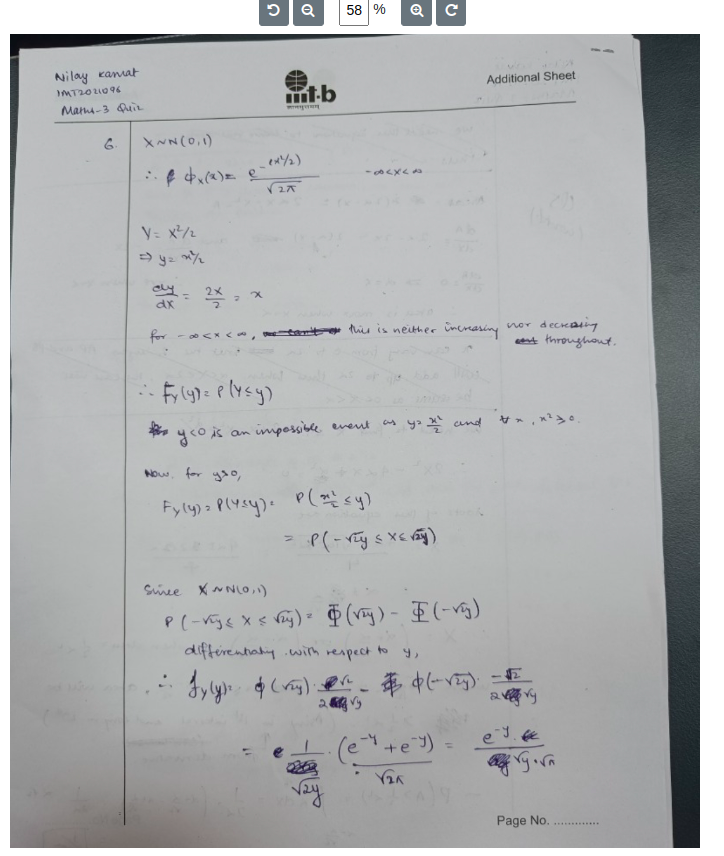 58 %
Nilay Kamat
IMT2021096
Maths-3 Quiz
iiit-b
Additional Sheet
6. X~N(0,1)
∴ ϕₓ(x) = e^(-(x²/2)) / √2π -∞<x<∞
Y = X²/2
⇒ y = x²/2
dy/dx = 2x/2 = x
for -∞<x<∞, this is neither increasing nor decreasing
throughout.
∴ F_Y(y) = P(Y≤y)
y<0 is an impossible event as y = x²/2 and ∀ x, x² ≥ 0.
Now, for y>0,
F_Y(y) = P(Y≤y) = P(x²/2 ≤ y)
= P(-√2y ≤ X ≤ √2y)
Since X~N(0,1)
P(-√2y ≤ X ≤ √2y) = Φ(√2y) - Φ(-√2y)
differentiating with respect to y,
∴ f_Y(y) = ϕ(√2y) · √2 / 2√y - ϕ(-√2y) · -√2 / 2√y
= 1/√2y · (e^-y + e^-y) / √2π = e^-y / √y·√π
Page No. .............